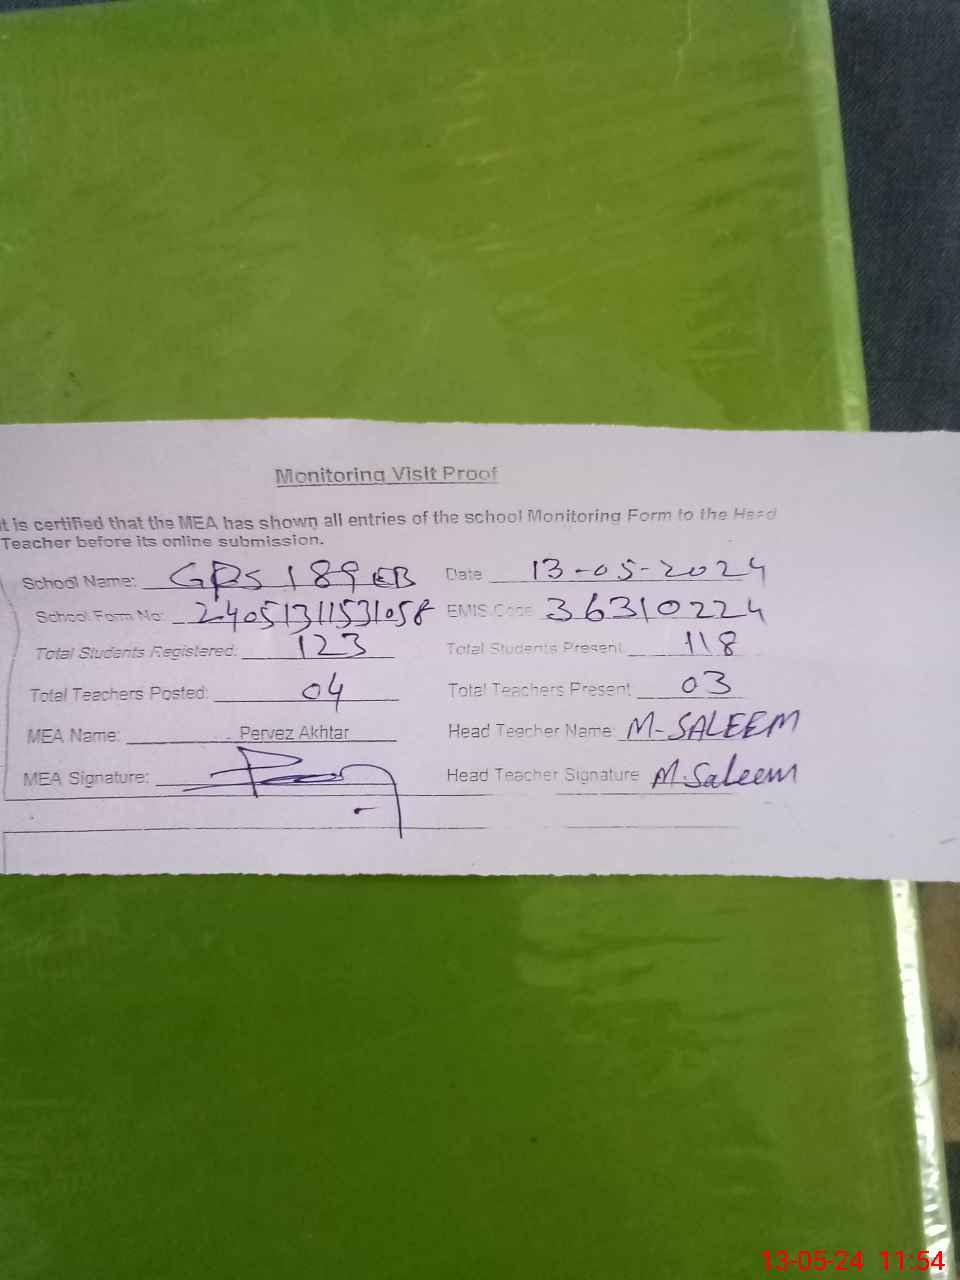 Monitoring Visit Proof
It is certified that the MEA has shown all entries of the school Monitoring Form to the Head
Teacher before its online submission.
School Name: GPS 189 EB Date 13-05-2024
School Form No: 24051311531058 EMIS Code 36310224
Total Students Registered: 123 Total Students Present 118
Total Teachers Posted: 04 Total Teachers Present 03
MEA Name: Pervez Akhtar Head Teacher Name M-SALEEM
MEA Signature: Head Teacher Signature M.Saleem
13-05-24 11:54